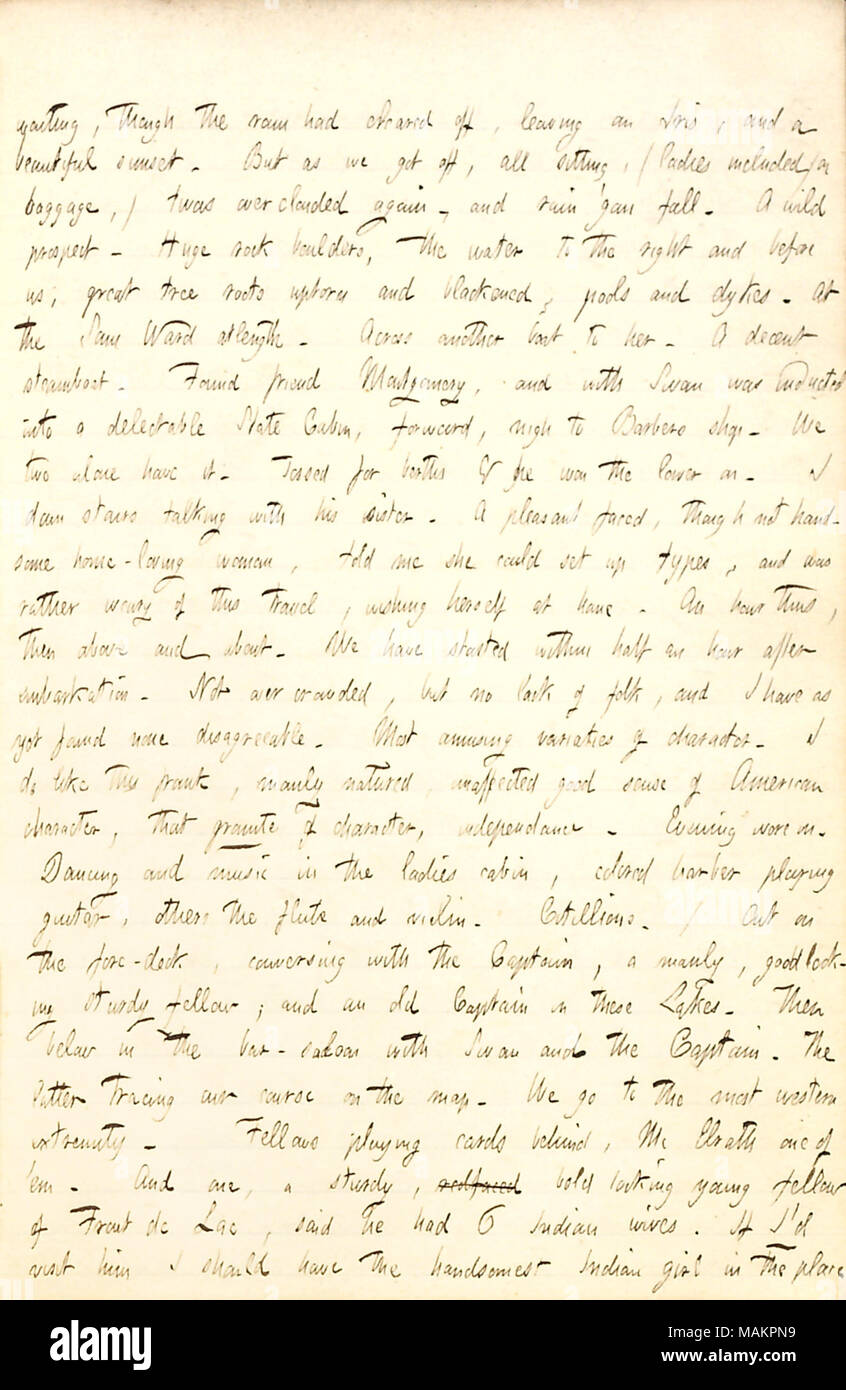 waiting, though the rain had cleared off, leaving an Iris, and a
beautiful sunset. But as we got off, all sitting, (ladies included) on
baggage,) twas overclouded again, and rain 'gan fall. A wild
prospect. Huge rock boulders, the water to the right and before
us; great tree roots uptorn and blackened, pools and dykes. At
the Sam Ward at length. Across another boat to her. A decent
steamboat. Found friend Montgomery, and with Swan was inducted
into a delectable State Cabin, forward, nigh to Barbers shop. We
two alone have it. Tossed for births & he won the lower on. I
down stairs talking with his sister. A pleasant faced, though not hand-
some home-loving woman, told me she could set up types, and was
rather weary of this travel, wishing herself at home. An hour thus,
then above and about. We have started within half an hour after
embarkation. Not overcrowded, but no lack of folk, and I have as
yet found none disagreeable. Most amusing varieties of character. I
do like this frank, manly natured, unaffected good sense of American
character, that granite of character, independance. Evening wore on.
Dancing and music in the ladies cabin, colored barber playing
guitar, others the flute and violin. Cotillions. / Out on
the fore-deck, conversing with the Captain, a manly, good look-
ing sturdy fellow; and an old Captain on these Lakes. Then
below in the bar-saloon with Swan and the Captain. The
latter tracing our course on the map. We go to the most western
extremity. Fellows playing cards behind, Mc Elrath one of
'em. And one, a sturdy, redfaced bold looking young fellow
of Front de Lac, said he had 6 Indian wives. If I'd
visit him I should have the handsomest Indian girl in the place
alamy
Image ID: MAKPN9
www.alamy.com